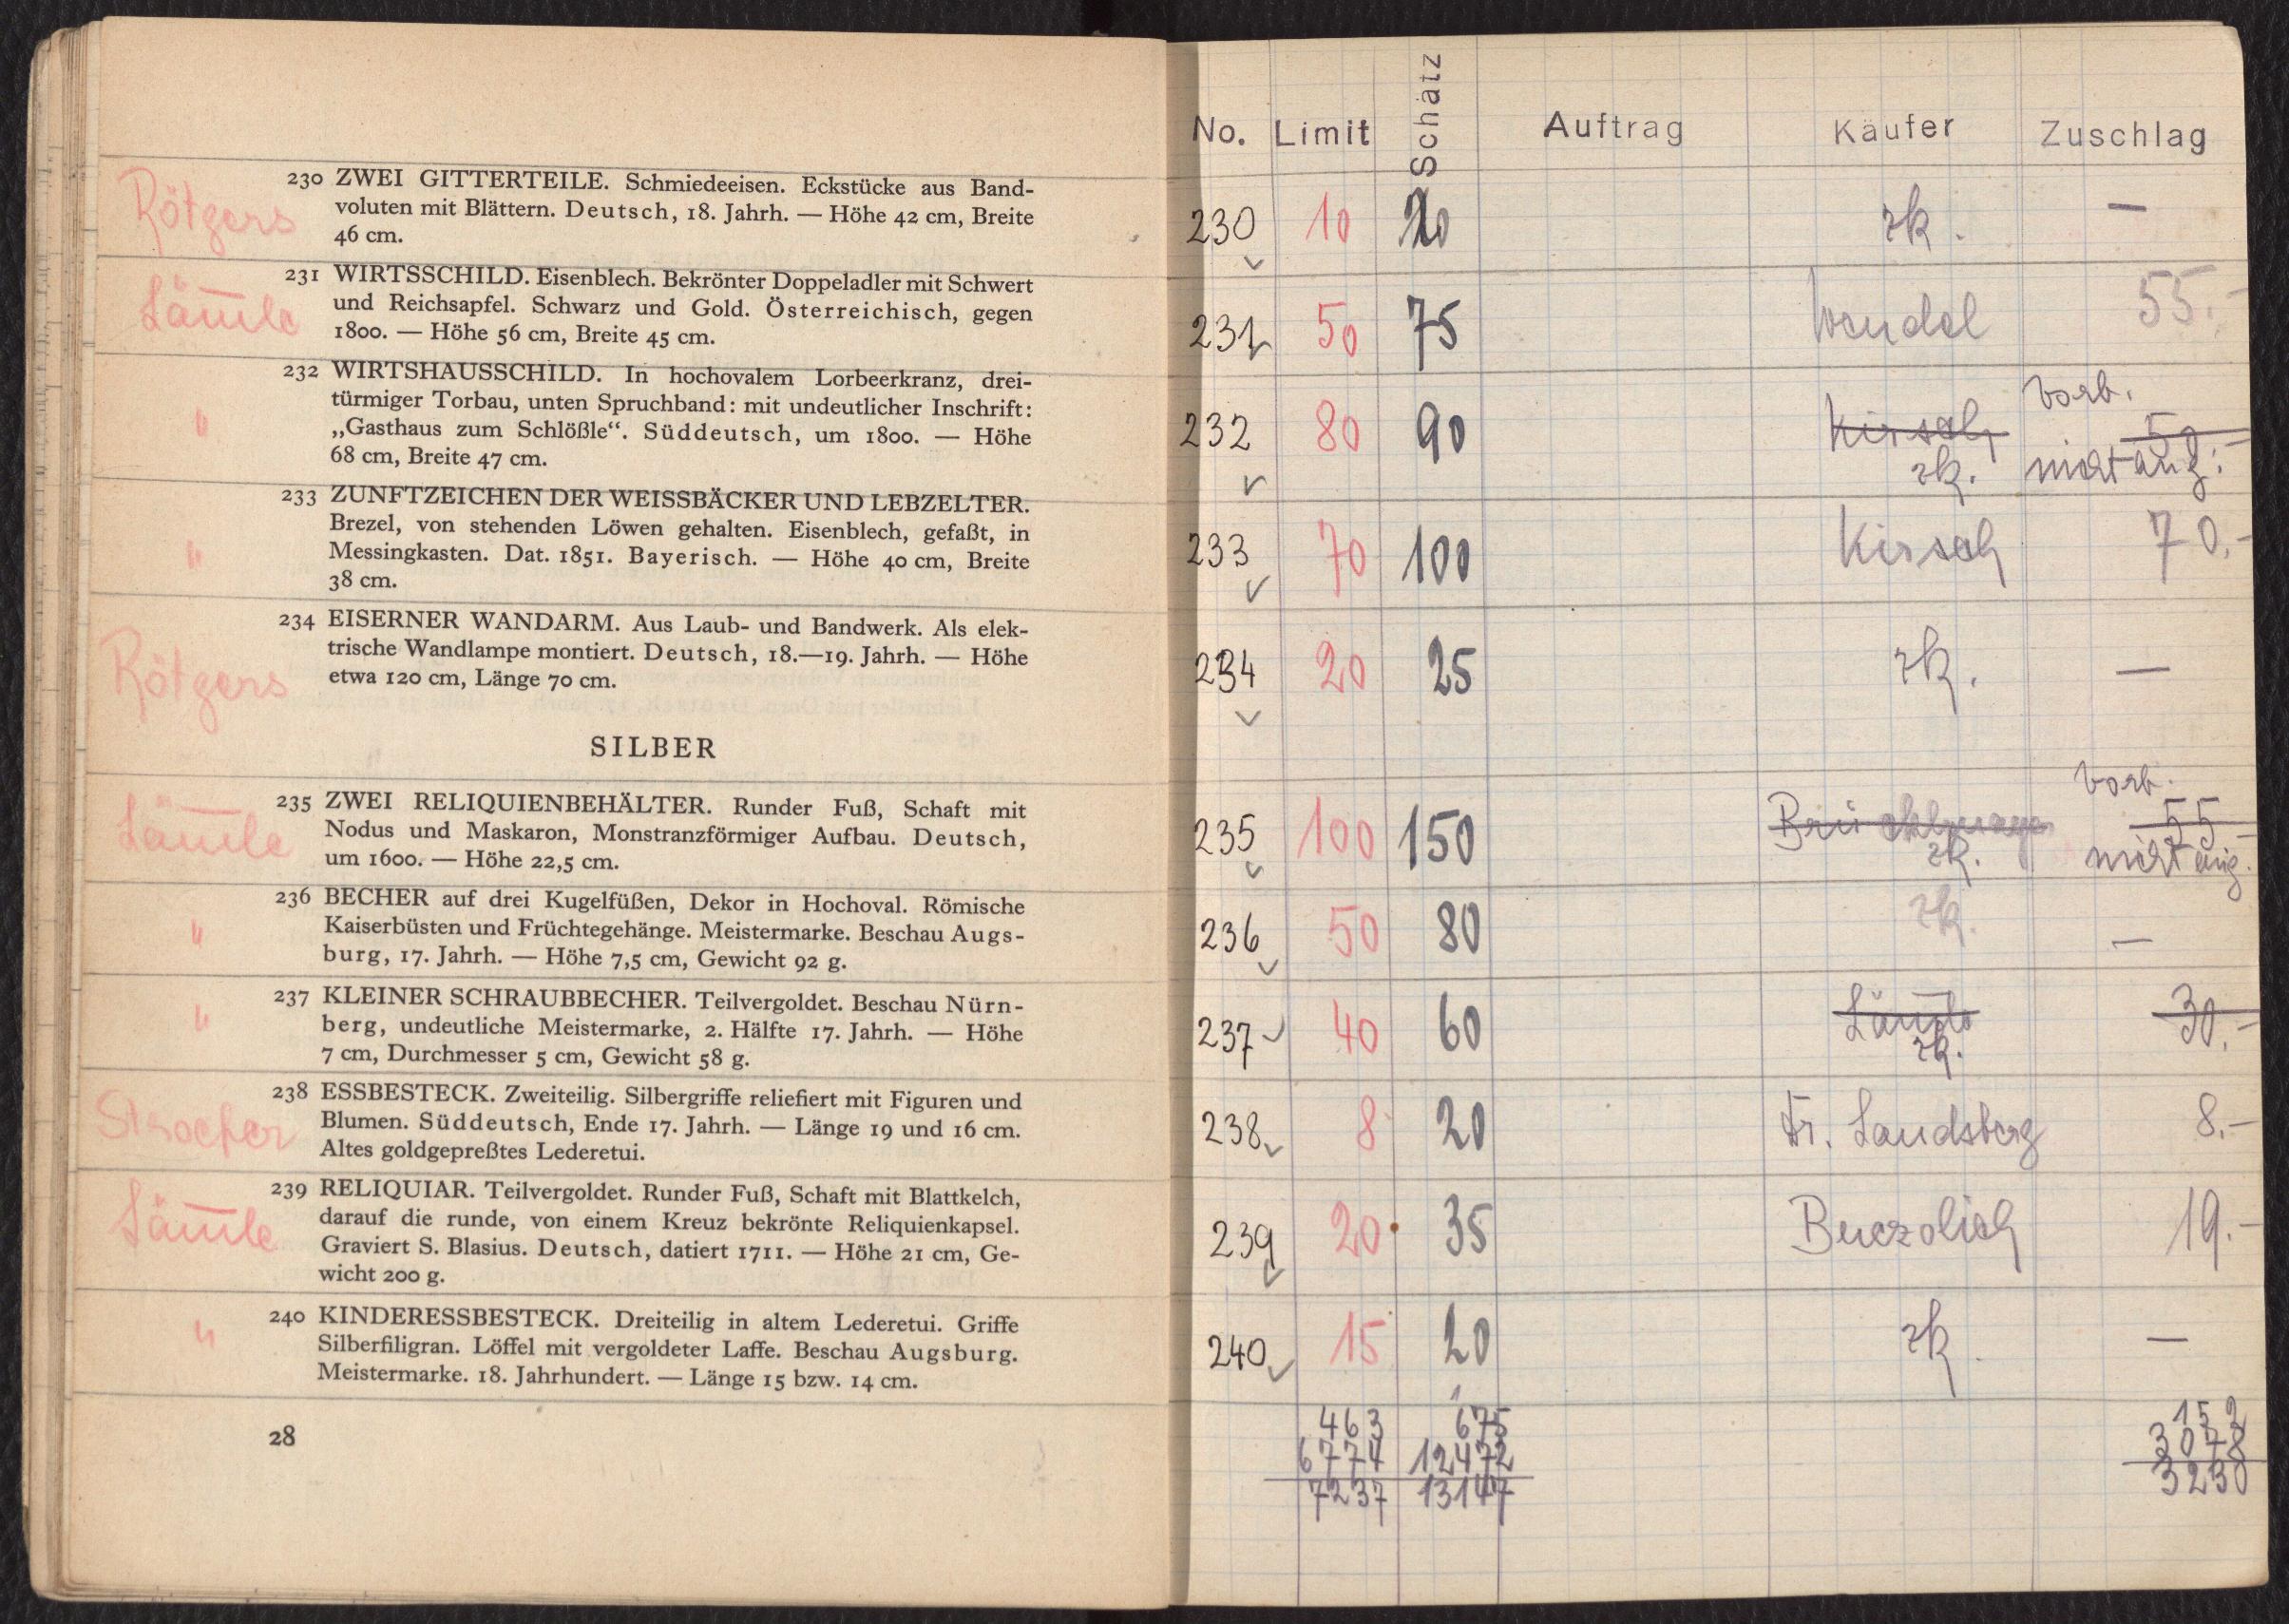 Rötgers
230 ZWEI GITTERTEILE. Schmiedeeisen. Eckstücke aus Band-
voluten mit Blättern. Deutsch, 18. Jahrh. — Höhe 42 cm, Breite
46 cm.
Lämle
231 WIRTSSCHILD. Eisenblech. Bekrönter Doppeladler mit Schwert
und Reichsapfel. Schwarz und Gold. Österreichisch, gegen
1800. — Höhe 56 cm, Breite 45 cm.
"
232 WIRTSHAUSSCHILD. In hochovalem Lorbeerkranz, drei-
türmiger Torbau, unten Spruchband: mit undeutlicher Inschrift:
„Gasthaus zum Schlößle“. Süddeutsch, um 1800. — Höhe
68 cm, Breite 47 cm.
"
233 ZUNFTZEICHEN DER WEISSBÄCKER UND LEBZELTER.
Brezel, von stehenden Löwen gehalten. Eisenblech, gefaßt, in
Messingkasten. Dat. 1851. Bayerisch. — Höhe 40 cm, Breite
38 cm.
Rötgers
234 EISERNER WANDARM. Aus Laub- und Bandwerk. Als elek-
trische Wandlampe montiert. Deutsch, 18.—19. Jahrh. — Höhe
etwa 120 cm, Länge 70 cm.
SILBER
Lämle
235 ZWEI RELIQUIENBEHÄLTER. Runder Fuß, Schaft mit
Nodus und Maskaron, Monstranzförmiger Aufbau. Deutsch,
um 1600. — Höhe 22,5 cm.
"
236 BECHER auf drei Kugelfüßen, Dekor in Hochoval. Römische
Kaiserbüsten und Früchtegehänge. Meistermarke. Beschau Augs-
burg, 17. Jahrh. — Höhe 7,5 cm, Gewicht 92 g.
"
237 KLEINER SCHRAUBBECHER. Teilvergoldet. Beschau Nürn-
berg, undeutliche Meistermarke, 2. Hälfte 17. Jahrh. — Höhe
7 cm, Durchmesser 5 cm, Gewicht 58 g.
238 ESSBESTECK. Zweiteilig. Silbergriffe reliefiert mit Figuren und
Blumen. Süddeutsch, Ende 17. Jahrh. — Länge 19 und 16 cm.
Altes goldgepreßtes Lederetui.
Lämle
239 RELIQUIAR. Teilvergoldet. Runder Fuß, Schaft mit Blattkelch,
darauf die runde, von einem Kreuz bekrönte Reliquienkapsel.
Graviert S. Blasius. Deutsch, datiert 1711. — Höhe 21 cm, Ge-
wicht 200 g.
"
240 KINDERESSBESTECK. Dreiteilig in altem Lederetui. Griffe
Silberfiligran. Löffel mit vergoldeter Laffe. Beschau Augsburg.
Meistermarke. 18. Jahrhundert. — Länge 15 bzw. 14 cm.
28
No. Limit Schätz Auftrag Käufer Zuschlag
230 10 20 zk. —
231 50 75 Wendel 55.-
vorb.
232 80 90 Kirsch 50.-
zk. nicht ang.
233 70 100 Kirsch 70.-
234 20 25 zk. —
vorb.
235 100 150 55.-
zk. nicht ang.
236 50 80 zk. —
237 40 60 Lämle 30.-
zk.
238 8 20 Fr. Landsberg 8.-
239 20 35 19.-
240 15 20 zk. —
463 675 152
6774 12472 3078
7237 13147 3230